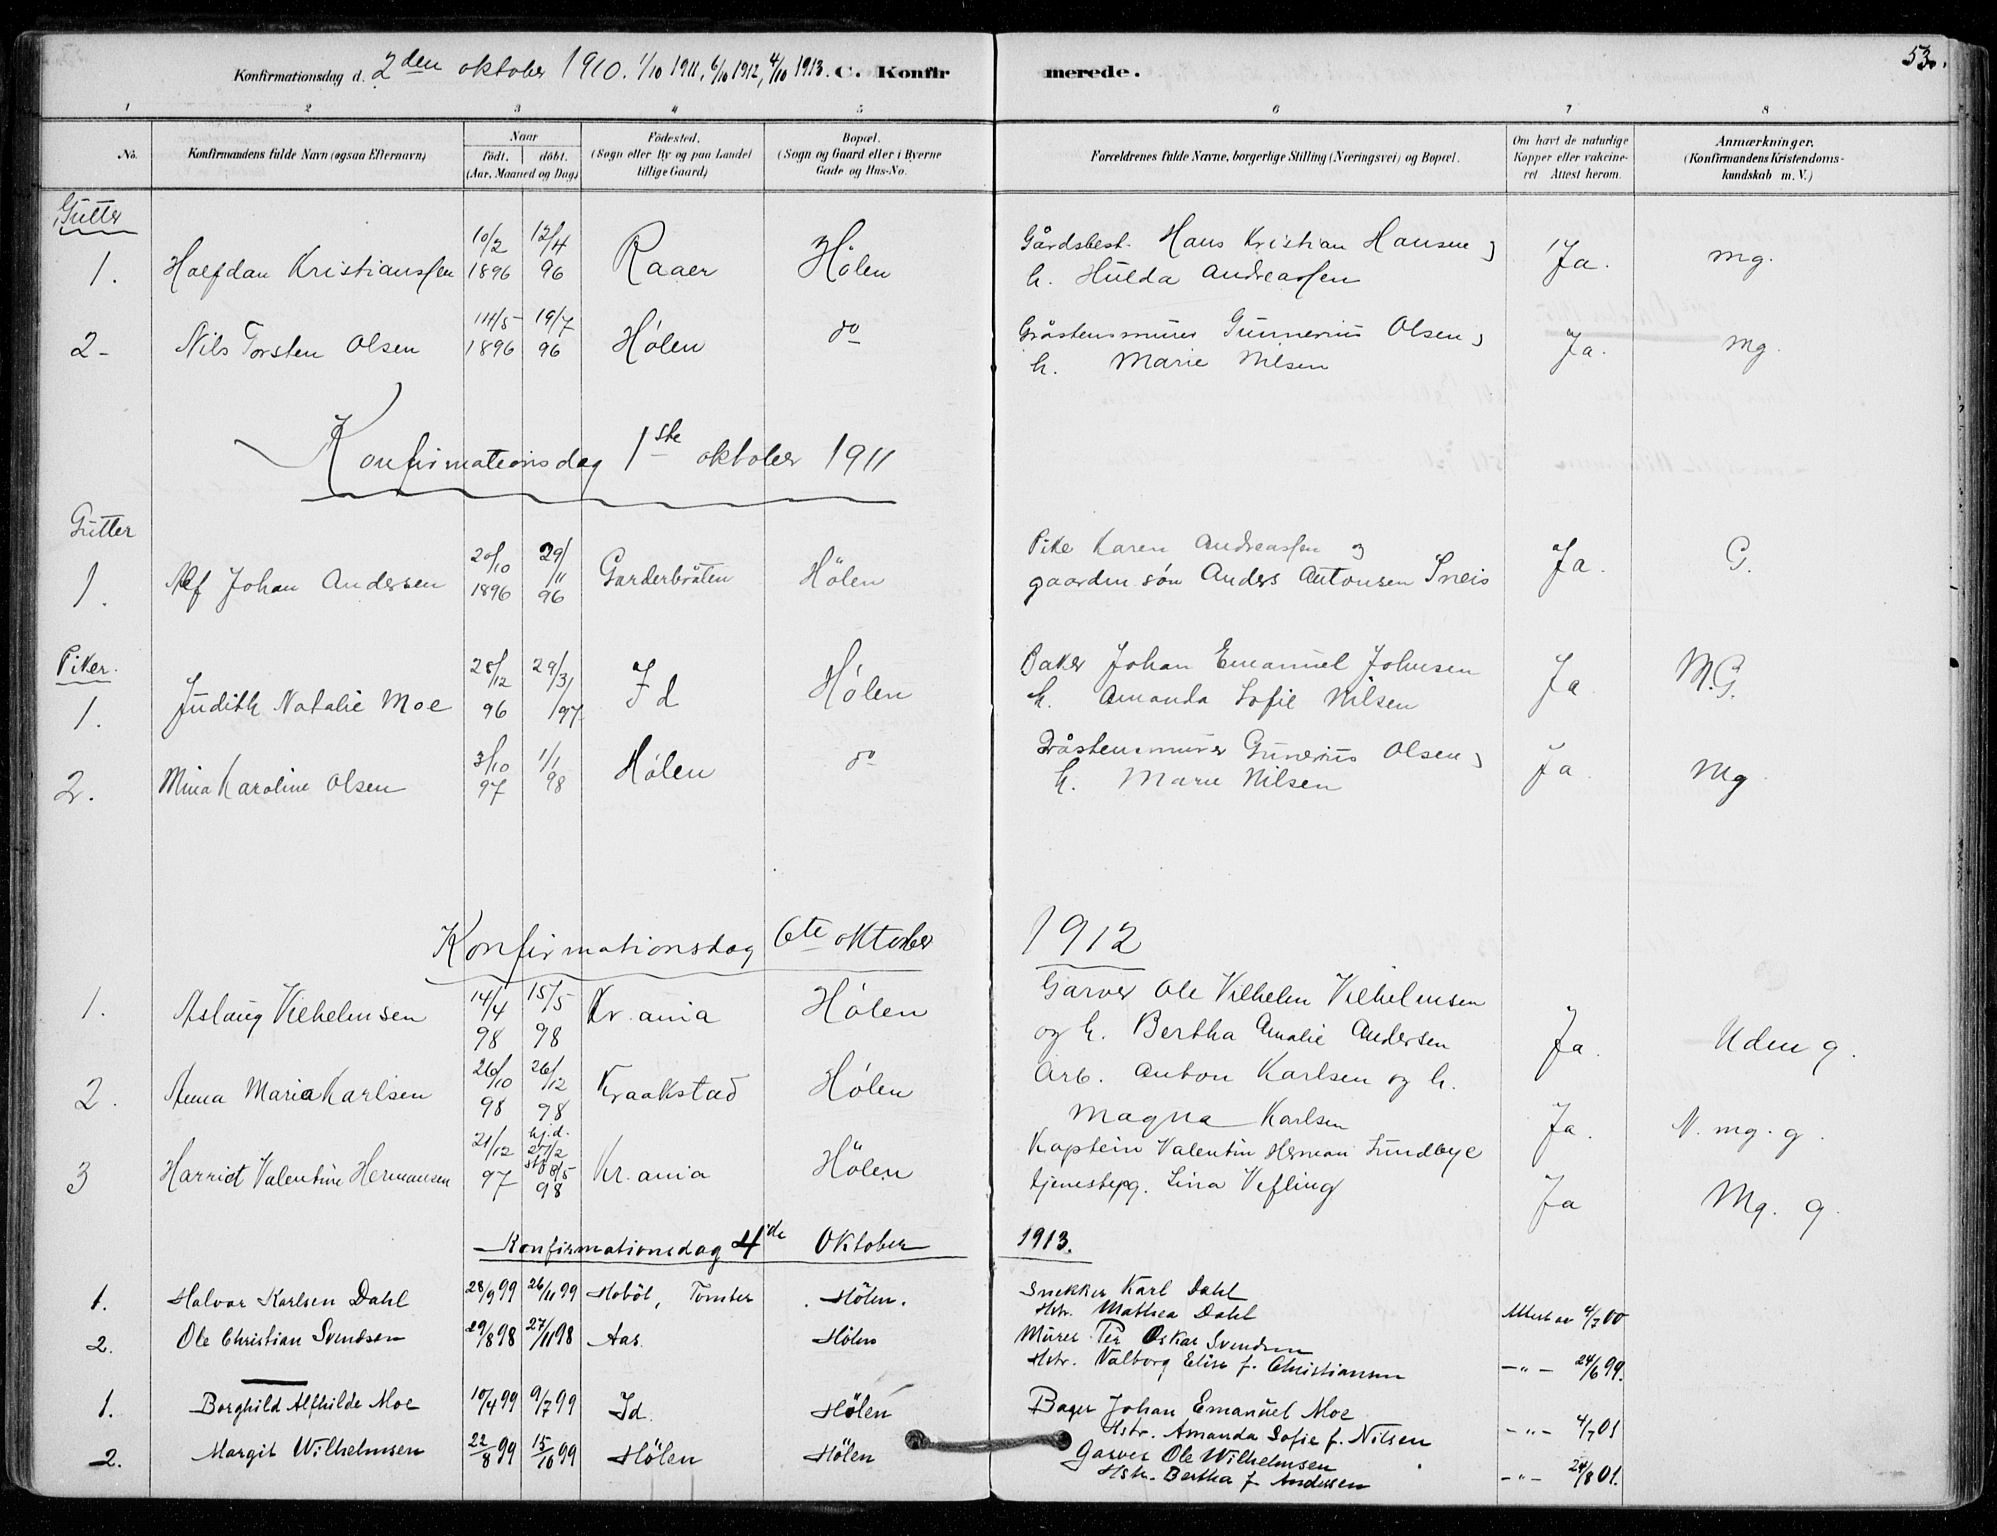 53.
Konfirmationsdag d. 2den oktober 1910. 1/10 1911, 6/10 1912, 4/10 1913. C. Konfirmerede.
1 2 3 4 5 6 7 8
No. Konfirmandens fulde Navn (ogsaa Efternavn) Naar födt. döbt. (Aar, Maaned og Dag) Födested. (Sogn eller By og paa Landet tillige Gaard) Bopæl. (Sogn og Gaard eller i Byerne Gade og Hus-No. Forældrenes fulde Navne, borgerlige Stilling (Næringsvei) og Bopæl. Om havt de naturlige Kopper eller vakcineret. Attest herom. Anmærkninger. (Konfirmandens Kristendomskundskab m. V.)
Gutter
1. Halfdan Kristianssen 10/2 1896 12/4 96 Raaer Hølen Gårdsbest. Hans Kristian Hansen og
h. Hulda Andreassen Ja. mg.
2- Nils Torsten Olsen 14/5 1896 19/7 96 Hølen do Gråstensmurer Gunnerius Olsen og
h. Marie Nilsen Ja. mg.
Konfirmationsdag 1ste oktober 1911
Gutter
1. Alf Johan Andersen 20/10 1896 29/11 96 Garderbråten Hølen Pike Karen Andreassen og
gaardm. søn Anders Antonsen Sneis Ja. G.
Piker.
1. Judith Natalie Moe 28/12 96 29/3 97 Id Hølen Baker Johan Emanuel Johnsen
h. Amanda Sofie Nilsen Ja M.G.
2. Mina Karoline Olsen 3/10 97 1/1 98 Hølen do Gråstensmurer Gunerius Olsen og
h. Marie Nilsen Ja. Mg
Konfirmationsdag 6te oktober 1912
1. Aslaug Vilhelmsen 14/4 98 15/5 98 Kr.ania Hølen Garver Ole Vilhelm Vilhelmsen
og h. Bertha Amalie Andersen Ja. Uden g.
2. Anna Maria Karlsen 26/10 98 26/12 98 Kraakstad Hølen Arb. Anton Karlsen og h.
Magna Karlsen Ja. N. mg. g.
3 Harriet Valentine Hermansen 21/12 97 hj.d. 27/2 stf. 8/5 98 Kr.ania Hølen Kaptein Valentin Herman Lundbye
tjenestepg. Lina Vefling Ja Mg. g.
Konfirmationsdag 4de Oktober 1913.
1. Halvar Karlsen Dahl 28/9 99 26/11 99 Hobøl, Tomter Hølen. Snekker Karl Dahl
Hstr. Mathea Dahl Attest av 4/7 00
2. Ole Christian Svendsen 29/8 98 27/11 98 Aas Hølen Murer Per Oskar Svendsen
Hstr. Valborg Elise f. Christiansen -"- 24/6 99.
1. Borghild Alfhilde Moe 10/4 99 9/7 99 Id. Hølen Bager Johan Emanuel Moe
Hstr. Amanda Sofie f. Nilsen -"- 4/7 01
2. Margit Wilhelmsen 22/8 99 15/10 99 Hølen Hølen Garver Ole Wilhelmsen
Hstr. Bertha f. Andersen -"- 24/8 01.